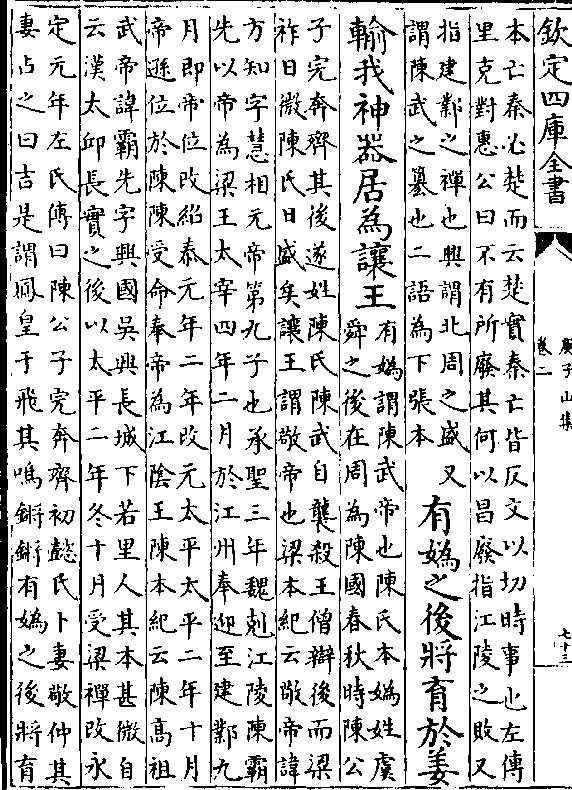 欽定四庫全書
庾子山集
卷二
七十三
本亡秦必楚而云楚實秦亡皆反文以切時事也左傳
里克對惠公曰不有所廢其何以昌廢指江陵之敗又
指建鄴之禪也興謂北周之盛又
謂陳武之簒也二語為下張本
有媯之後將育於姜
輸我神器居為讓王
有媯謂陳武帝也陳氏本媯姓虞
舜之後在周為陳國春秋時陳公
子完奔齊其後遂姓陳氏陳武自襲殺王僧辯後而梁
祚日微陳氏日盛矣讓王謂敬帝也梁本紀云敬帝諱
方知字慧相元帝第九子也承聖三年魏剋江陵陳霸
先以帝為梁王太宰四年二月於江州奉迎至建鄴九
月即帝位改紹泰元年二年改元太平太平二年十月
帝遜位於陳陳受命奉帝為江陰王陳本紀云陳高祖
武帝諱霸先字興國吳興長城下若里人其本甚微自
云漢太邱長實之後以太平二年冬十月受梁禪改永
定元年左氏傳曰陳公子完奔齊初懿氏卜妻敬仲其
妻占之曰吉是謂鳳皇于飛其鳴鏘鏘有媯之後將育